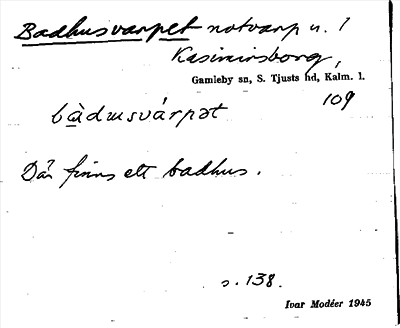 Badhusvarpet notvarp u. 1
Kasimirsborg,
Gamleby sn, S. Tjusts hd, Kalm. l.
109
bàdusvárpət
Där finns ett badhus.
s. 138.
Ivar Modéer 1945